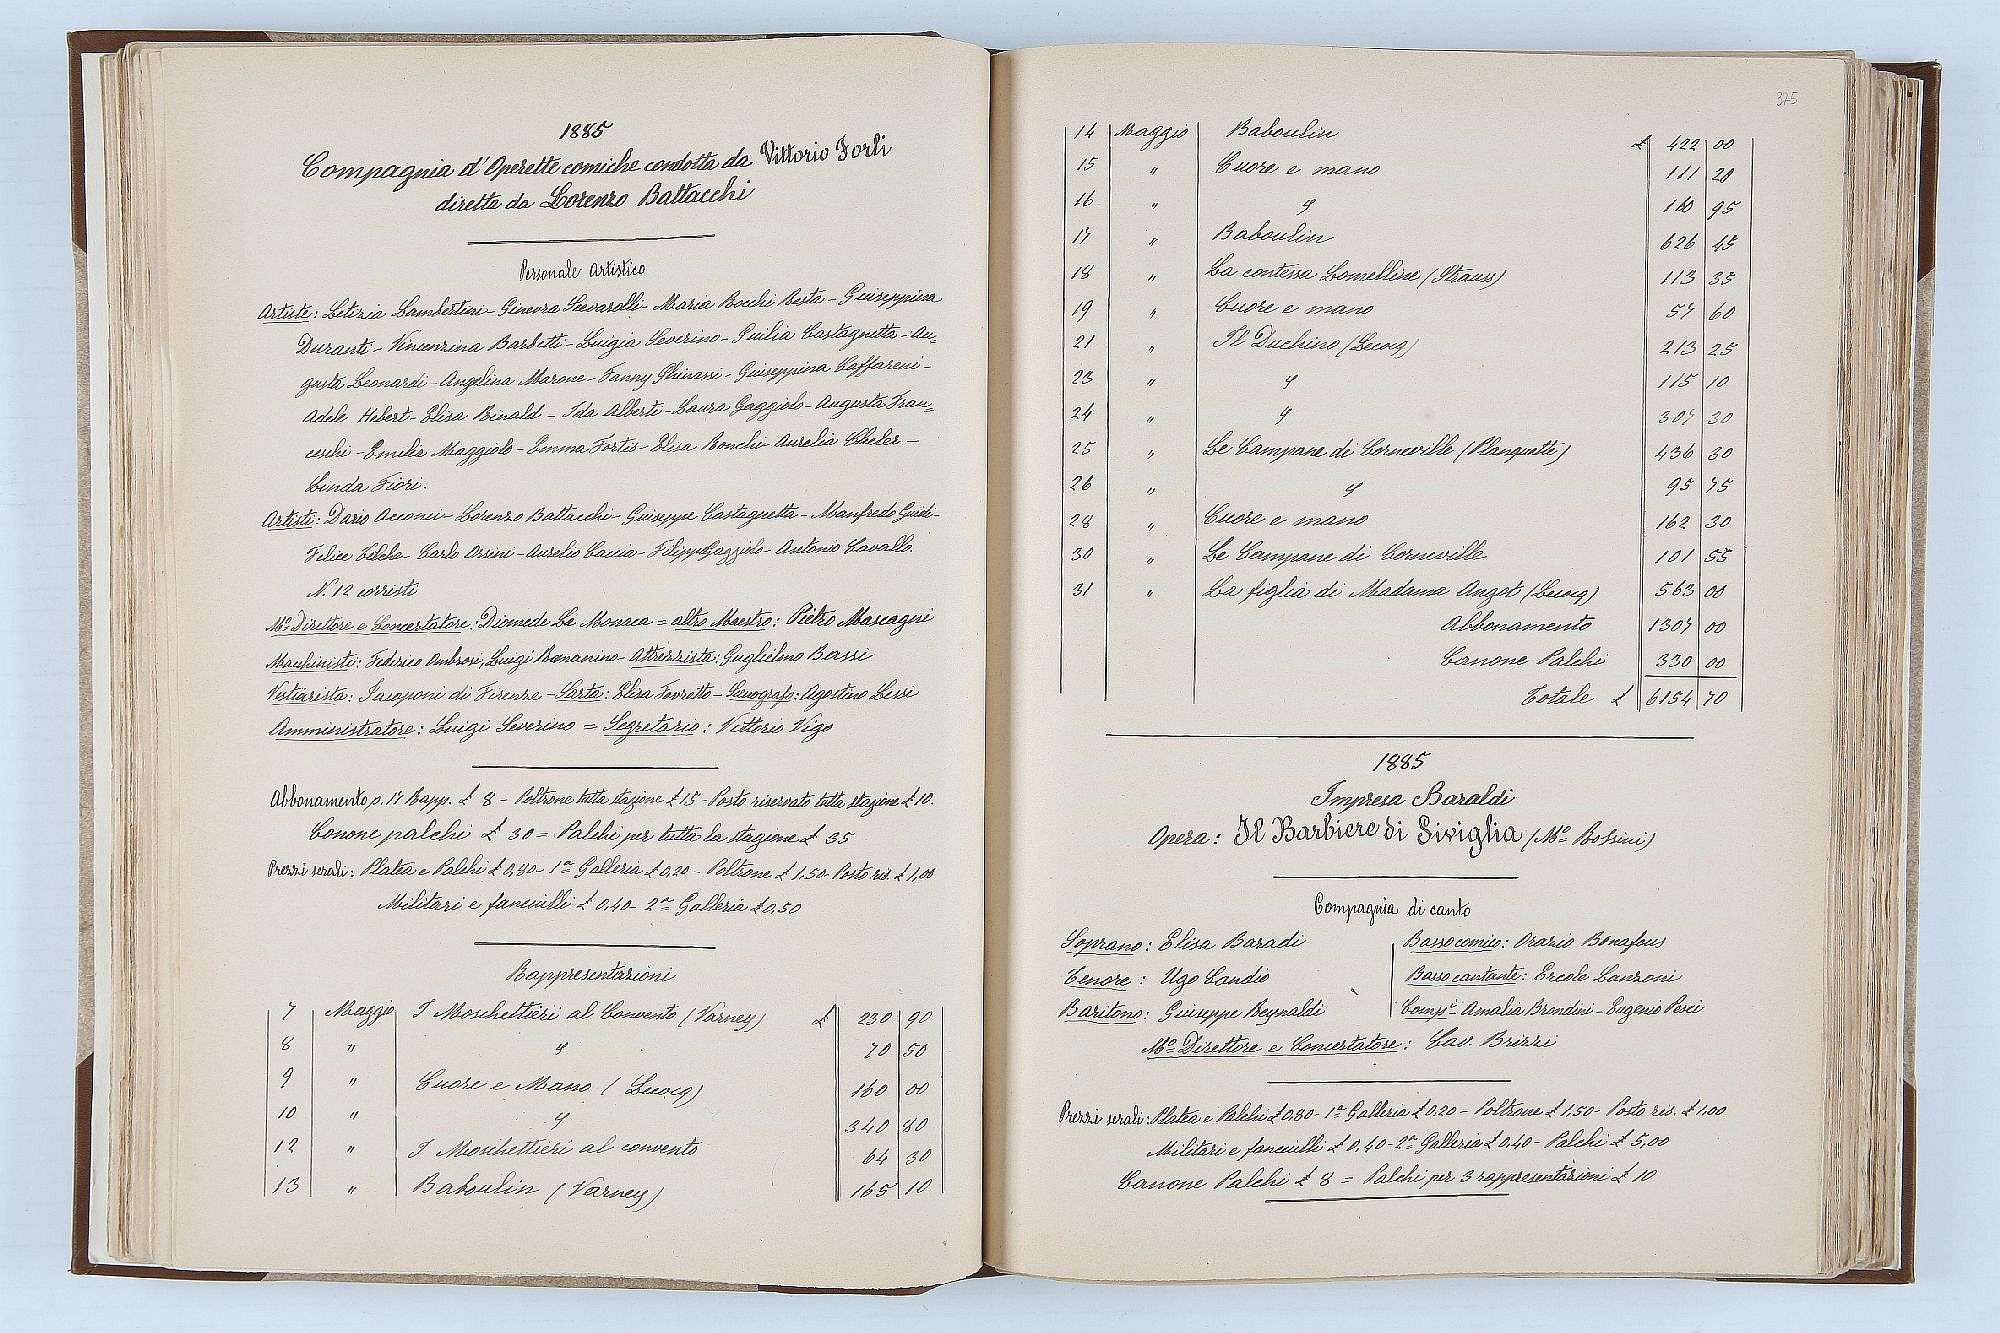 1885
Compagnia d'Operette comiche condotta da Vittorio Forli
diretta da Lorenzo Battacchi
Personale Artistico
Artiste: Letizia Lambertini - Ginevra - Maria Bocchi Resta - Giuseppina
Duranti - Vincenzina Barbetti - Luigia Severino - Giulia Castagnetta - Au=
gusta Leonardi - Angelina Marone - Fanny Ghinassi - Giuseppina Caffareni -
Adele Hebert - Elisa Rinaldi - Ida Alberti - Laura Gaggiolo - Augusta Fran=
ceschi - Emilia Maggiolo - Emma Fortis - Elisa Ronchi - Aurelia -
Linda Fiori.
Artisti: Dario Acconci - Lorenzo Battacchi - Giuseppe Castagnetta - Manfredo Guidi -
Felice - Carlo Orsini - Aurelio Caccia - Filippo Gaggiolo - Antonio Cavallo.
N. 12 corristi
Mo. Direttore e Concertatore: Diomede Le Monaca = altro Maestro: Pietro Mascagni
Macchinisti: Federico Ambrosi, Luigi Bonanino - Attrezzista: Guglielmo Bassi
Vestiarista: Iacoponi di Firenze - Sarta: Elisa Favretto - Scenografo: Agostino Lessi
Amministratore: Luigi Severino = Segretario: Vittorio Vigo
Abbonamento p. 17 Rapp. £ 8 - Poltrone tutta stagione £ 15 - Posto riservato tutta stagione £ 10.
Canone palchi £ 30 = Palchi per tutta la stagione £ 35
Prezzi serali: Platea e Palchi £ 0,80 - 1a Galleria £ 0,20 - Poltrone £ 1.50 - Posto ris. £ 1,00
Militari e fanciulli £ 0,40 - 2a Galleria £ 0,50
Rappresentazioni
7 Maggio I Moschettieri al Convento (Varney) £ 230 90
8 " " 70 50
9 " Cuore e Mano (Lecocq) 160 00
10 " " 340 80
12 " I Moschettieri al convento 64 30
13 " Baboulin (Varney) 165 10
375
14 Maggio Baboulin £ 422 00
15 " Cuore e mano 111 20
16 " " 160 95
17 " Baboulin 626 45
18 " La contessa Lomelline (Strauss) 113 35
19 " Cuore e mano 57 60
21 " Il Duchino (Lecocq) 213 25
23 " " 115 10
24 " " 307 30
25 " Le Campane di Corneville (Planquette) 436 30
26 " " 95 75
28 " Cuore e mano 162 30
30 " Le Campane di Corneville 101 55
31 " La figlia di Madama Angot (Lecocq) 563 00
Abbonamento 1307 00
Canone Palchi 330 00
Totale £ 6154 70
1885
Impresa Baraldi
Opera: Il Barbiere di Siviglia (Mo. Rossini)
Compagnia di canto
Soprano: Elisa Baradi
Tenore: Ugo Candio
Baritono: Giuseppe Reynaldi
Basso comico: Orazio Bonafous
Basso cantante: Ercole Lanzoni
Comp.i Amalia Brondini - Eugenio Pesci
Mo. Direttore e Concertatore: Cav. Brizzi
Prezzi serali: Platea e Palchi £ 0,80 - 1a Galleria £ 0,20 - Poltrone £ 1.50 - Posto ris. £ 1,00
Militari e fanciulli £ 0,40 - 2a Galleria £ 0,40 - Palchi £ 5,00
Canone Palchi £ 8 = Palchi per 3 rappresentazioni £ 10